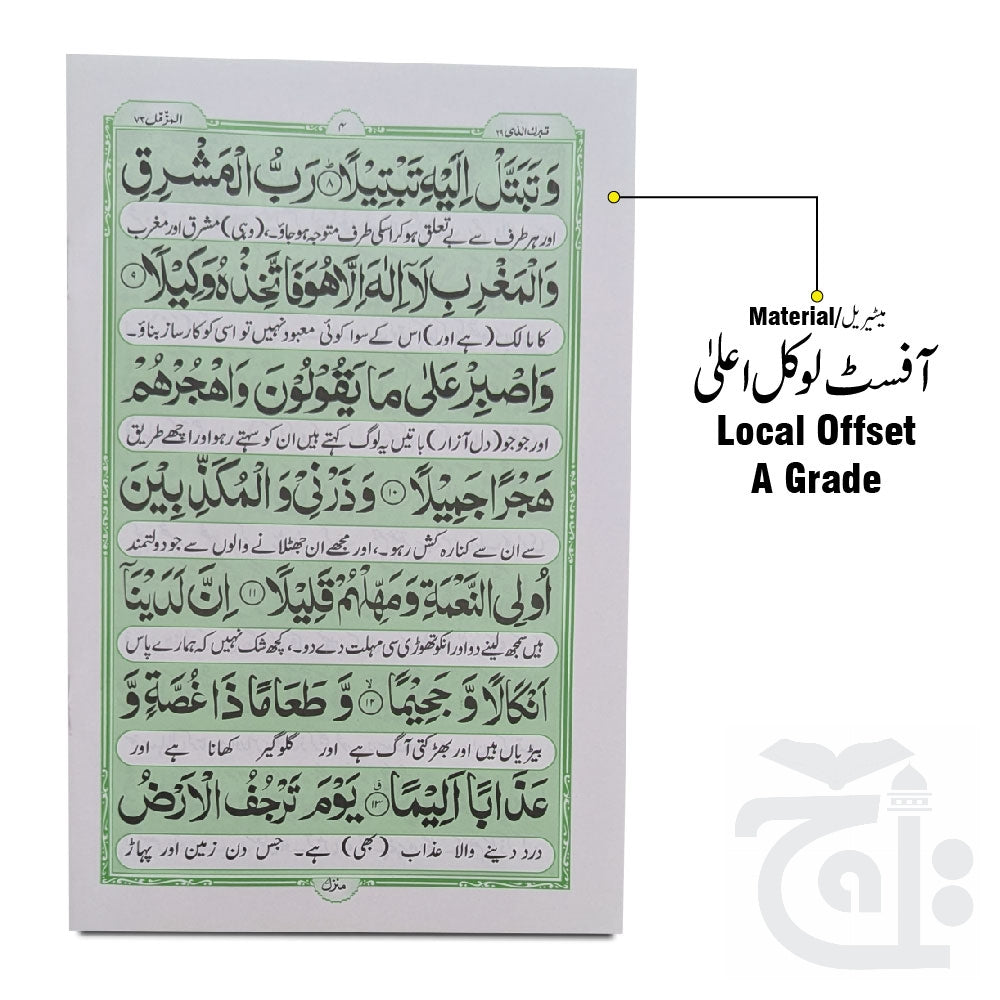 تبٰرک الذی ۲۹
۴
المزّمّل ۷۳
وَ تَبَتَّلْ اِلَیْهِ تَبْتِیْلًا ؕ۸ رَبُّ الْمَشْرِقِ
اور ہر طرف سے بے تعلق ہو کر اسکی طرف متوجہ ہو جاؤ۔، (وہی) مشرق اور مغرب
وَالْمَغْرِبِ لَاۤ اِلٰهَ اِلَّا هُوَ فَاتَّخِذْهُ وَكِیْلًا ۹
کا مالک (ہے اور) اس کے سوا کوئی معبود نہیں تو اسی کو کارساز بناؤ۔
وَاصْبِرْ عَلٰی مَا یَقُوْلُوْنَ وَاهْجُرْهُمْ
اور جو جو (دل آزار) باتیں یہ لوگ کہتے ہیں ان کو سہتے رہو اور اچھے طریق
هَجْرًا جَمِیْلًا ۱۰ وَ ذَرْنِیْ وَ الْمُكَذِّبِیْنَ
سے ان سے کنارہ کش رہو۔، اور مجھے ان جھٹلانے والوں سے جو دولتمند
اُولِی النَّعْمَةِ وَ مَهِّلْهُمْ قَلِیْلًا ۱۱ اِنَّ لَدَیْنَاۤ
ہیں سمجھ لینے دو اور انکو تھوڑی سی مہلت دے دو۔، کچھ شک نہیں کہ ہمارے پاس
اَنْكَالًا وَّ جَحِیْمًا ۙ۱۲ وَّ طَعَامًا ذَا غُصَّةٍ وَّ
بیڑیاں ہیں اور بھڑکتی آگ ہے اور گلوگیر کھانا ہے اور
عَذَابًا اَلِیْمًا ۱۳ یَوْمَ تَرْجُفُ الْاَرْضُ
درد دینے والا عذاب (بھی) ہے۔ جس دن زمین اور پہاڑ
منزل
Material/میٹیریل
آفسٹ لوکل اعلیٰ
Local Offset
A Grade
تاج